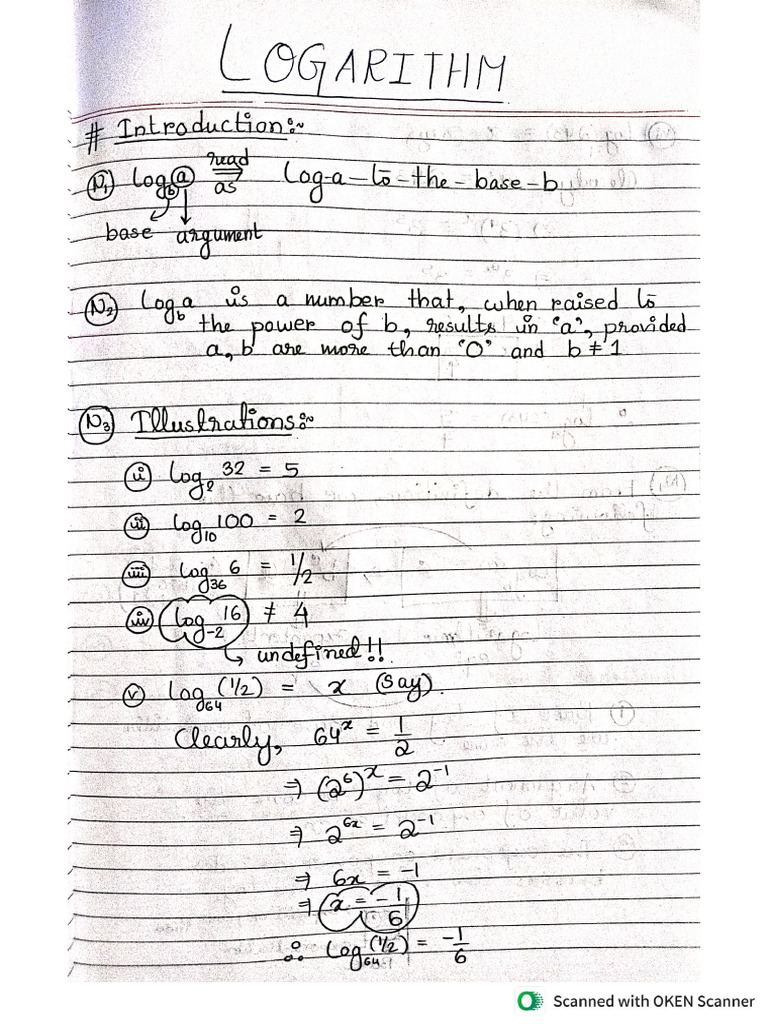 LOGARITHM
# Introduction:~
N₁ log_b a read as ⇒ log-a-to-the-base-b
base argument
N₂ log_b a is a number that, when raised to
the power of b, results in 'a', provided
a, b are more than '0' and b ≠ 1
N₃ Illustrations:~
(i) log₂ 32 = 5
(ii) log₁₀ 100 = 2
(iii) log₃₆ 6 = 1/2
(iv) log₋₂ 16 ≠ 4
↳ undefined!!
(v) log₆₄ (1/2) = x (say).
Clearly, 64ˣ = 1/2
⇒ (2⁶)ˣ = 2⁻¹
⇒ 2⁶ˣ = 2⁻¹
⇒ 6x = -1
⇒ x = -1/6
∴ log₆₄ (1/2) = -1/6
Scanned with OKEN Scanner